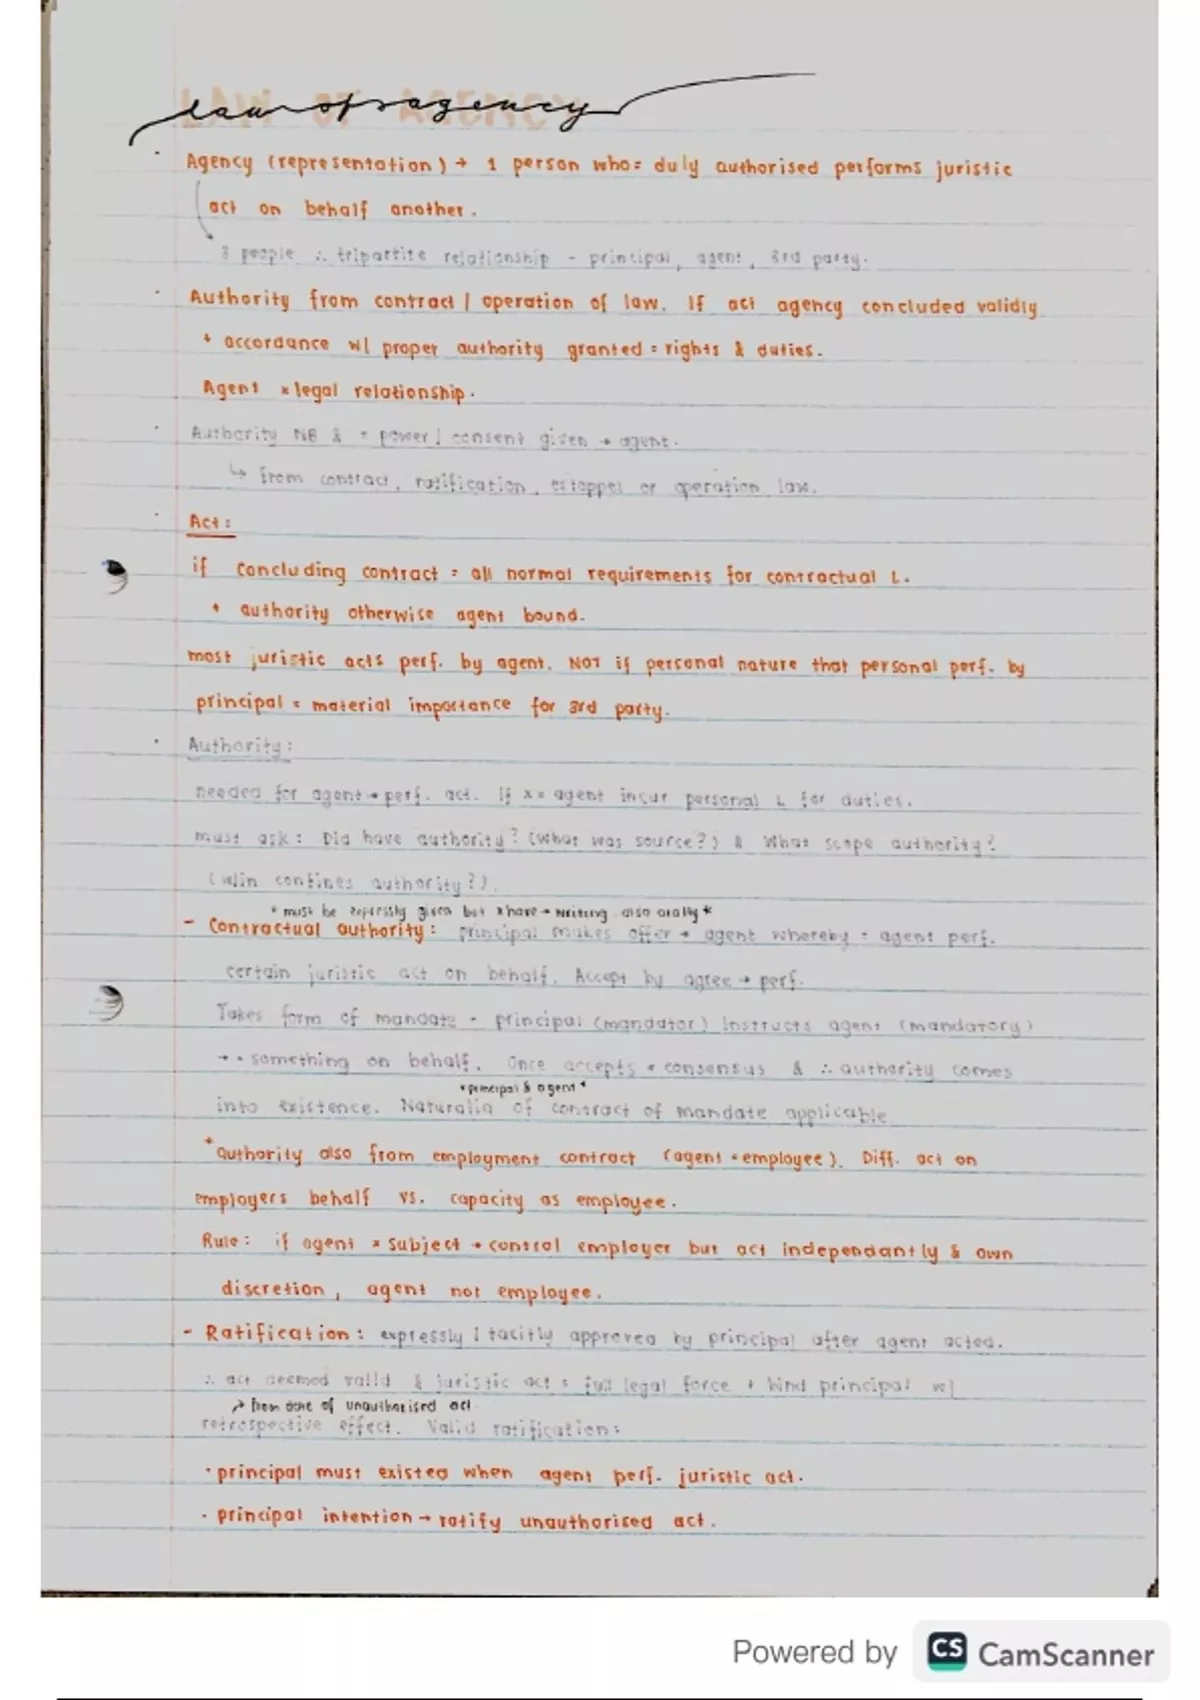 LAW OF AGENCY
law of agency
· Agency (representation) → 1 person who = duly authorised performs juristic
act on behalf another.
3 people ∴ tripartite relationship - principal, agent, 3rd party.
· Authority from contract / operation of law. If act agency concluded validly
+ accordance w/ proper authority granted = rights & duties.
Agent × legal relationship.
· Authority NB & = power / consent given → agent.
↳ from contract, ratification, estoppel or operation law.
· Act:
if concluding contract = all normal requirements for contractual L.
+ authority otherwise agent bound.
most juristic acts perf. by agent. NOT if personal nature that personal perf. by
principal = material importance for 3rd party.
· Authority:
needed for agent → perf. act. If × = agent incur personal L for duties.
must ask: Did have authority? (What was source?) & What scope authority?
(W/in confines authority?).
* must be expressly given but × have → writing, also orally *
- Contractual authority: principal makes offer → agent whereby = agent perf.
certain juristic act on behalf. Accept by agree → perf.
Takes form of mandate - principal (mandator) instructs agent (mandatory)
→ · something on behalf. Once accepts = consensus & ∴ authority comes
* principal & agent *
into existence. Naturalia of contract of mandate applicable.
* authority also from employment contract (agent = employee). Diff. act on
employers behalf vs. capacity as employee.
Rule: if agent × subject → control employer but act independantly & own
discretion, agent not employee.
- Ratification: expressly / tacitly approved by principal after agent acted.
∴ act deemed valid & juristic act = full legal force + bind principal w/
↗ from date of unauthorised act.
retrospective effect. Valid ratification:
· principal must existed when agent perf. juristic act.
· principal intention → ratify unauthorised act.
Powered by CS CamScanner